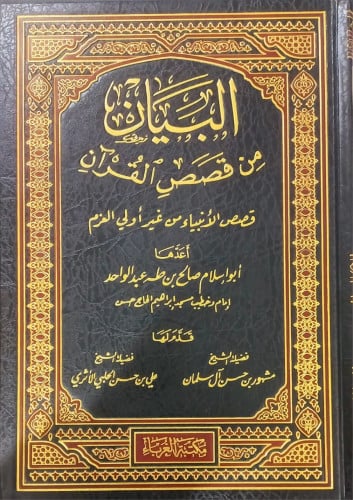 البيان
من قصص القرآن
قصص الأنبياء من غير أولي العزم
أعدها
أبو إسلام صالح بن طه عبد الواحد
إمام وخطيب مسجد إبراهيم الحاج حسن
قدم لها
فضيلة الشيخ
مشهور بن حسن آل سلمان
فضيلة الشيخ
علي بن حسن الحلبي الأثري
مكتبة الغرباء